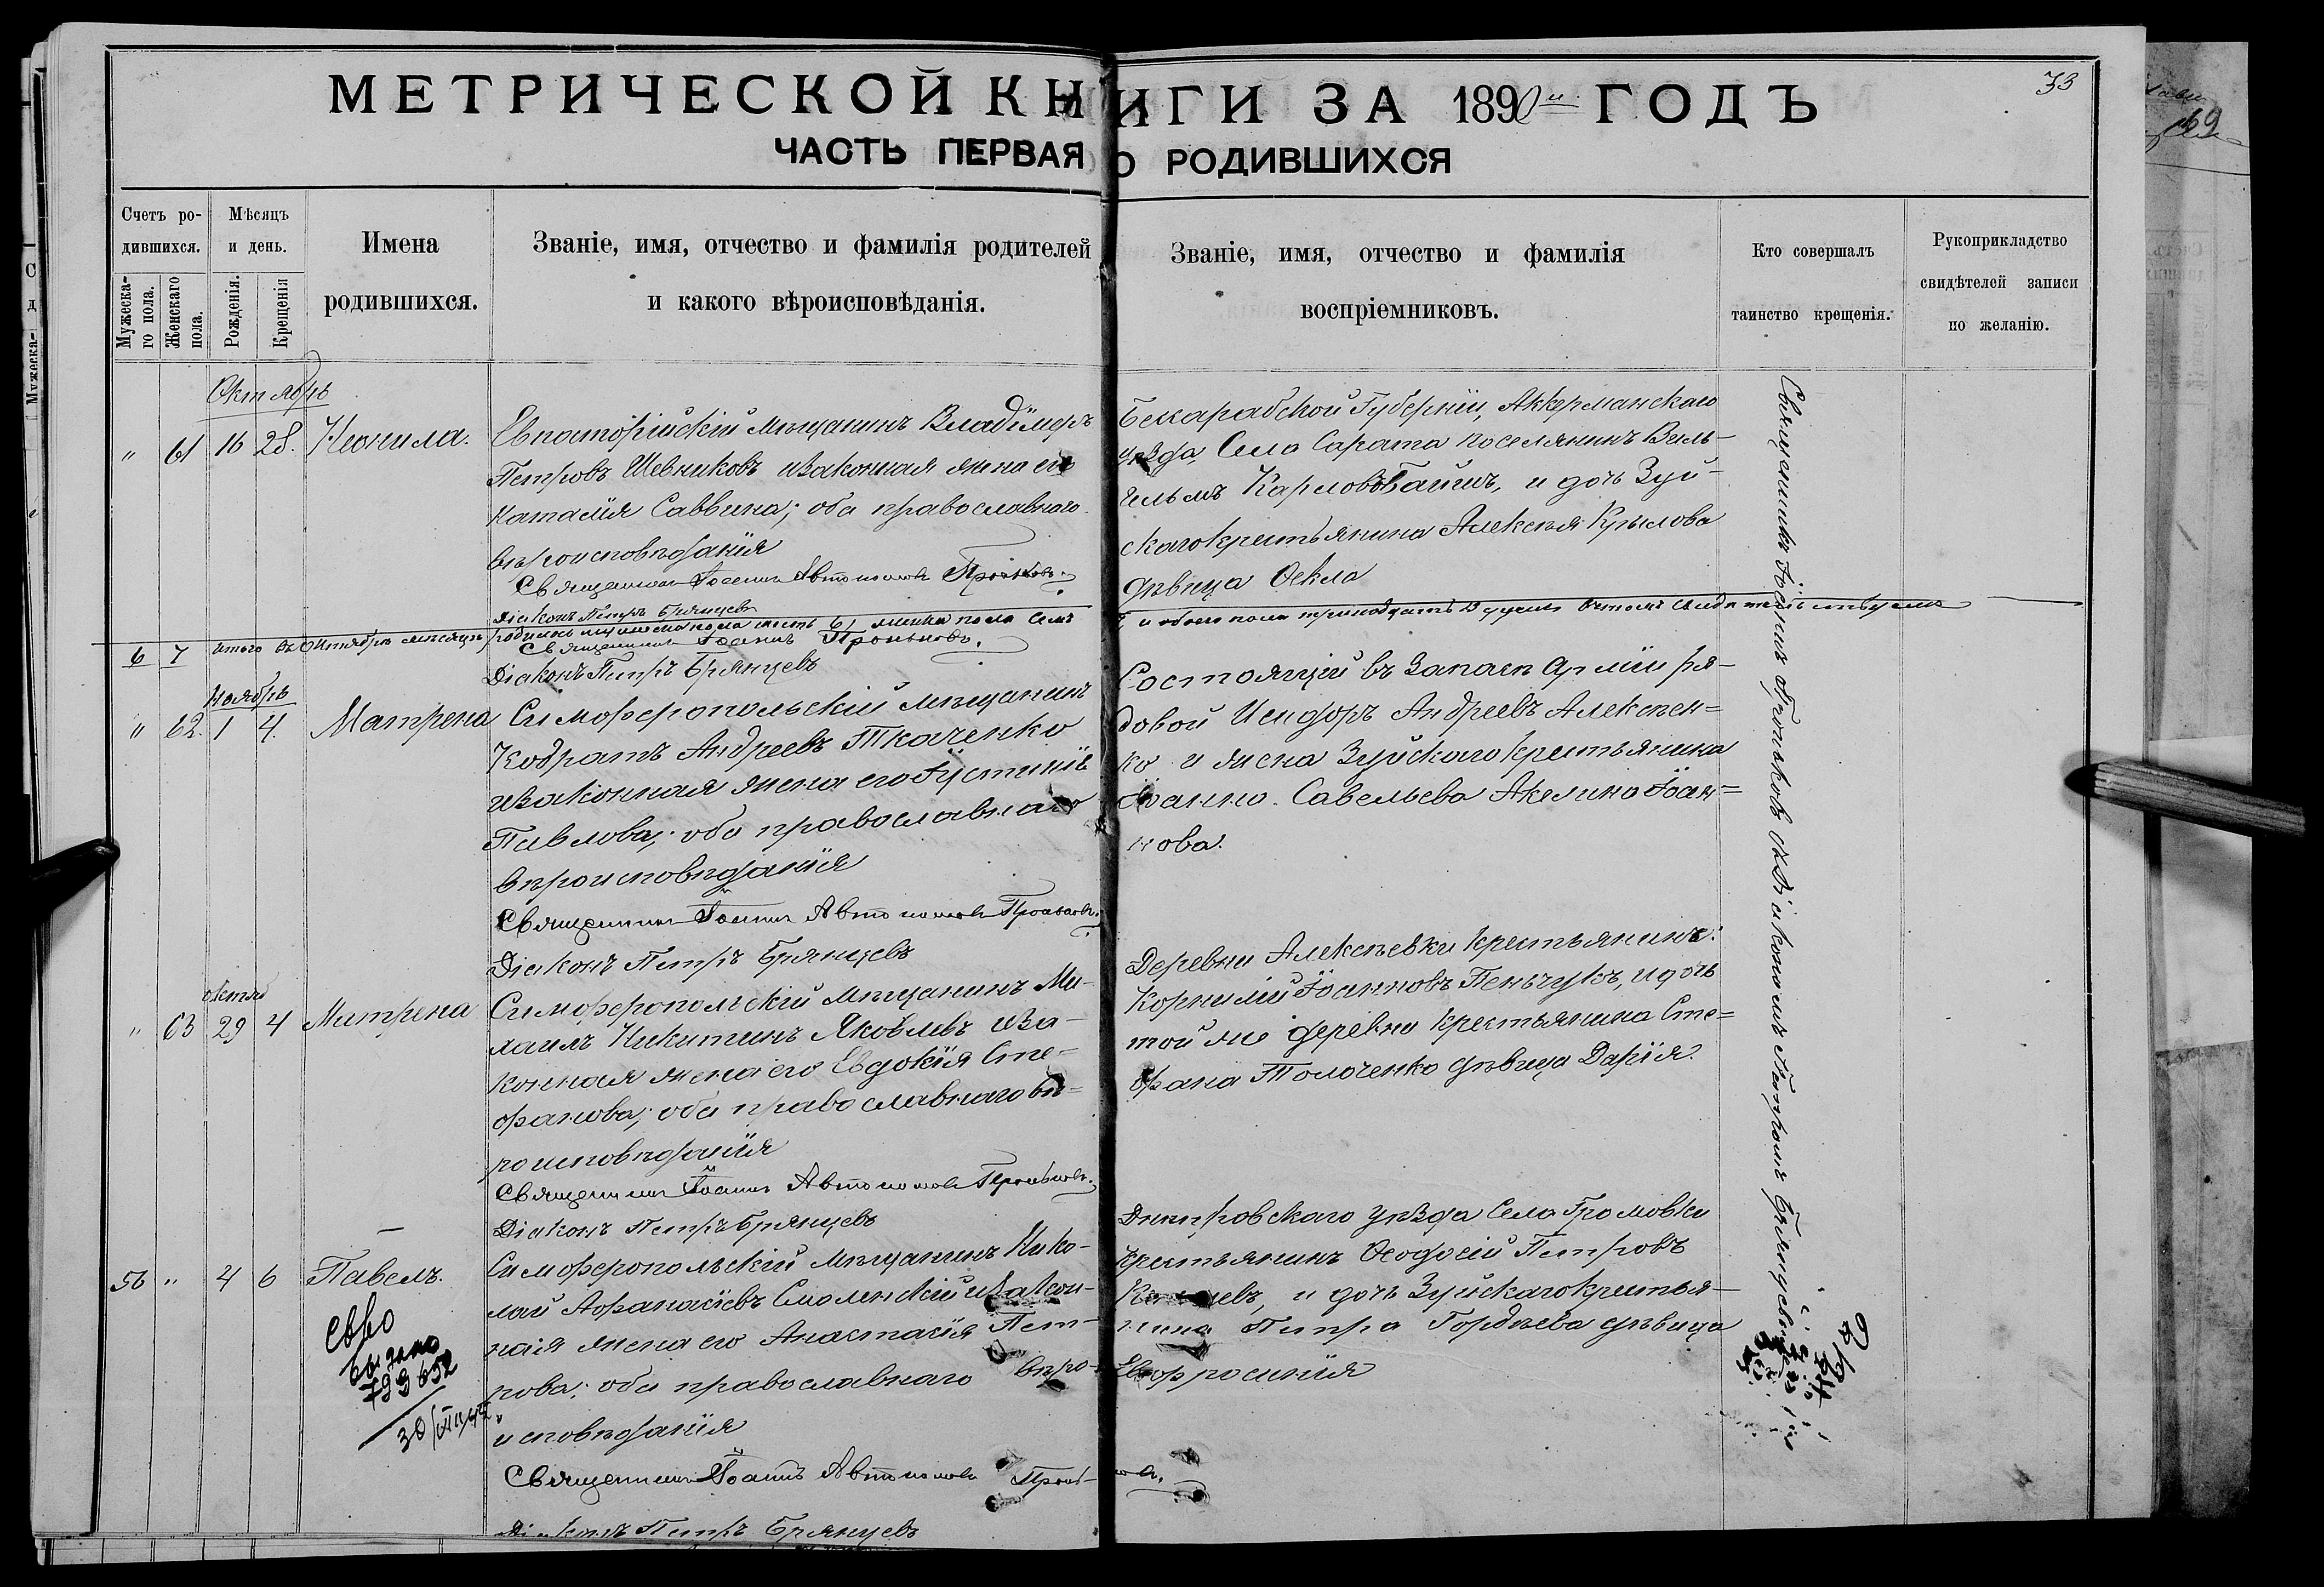 МЕТРИЧЕСКОЙ КНИГИ ЗА 1890й ГОДЪ
73
ЧАСТЬ ПЕРВАЯ О РОДИВШИХСЯ
Счетъ ро-
дившихся.
Мужеска-
го пола.
Женскаго
пола.
Мѣсяцъ
и день.
Рожденія.
Крещенія
Имена
родившихся.
Званіе, имя, отчество и фамилія родителей
и какого вѣроисповѣданія.
Званіе, имя, отчество и фамилія
воспріемниковъ.
Кто совершалъ
таинство крещенія.
Рукоприкладство
свидѣтелей записи
по желанію.
Октябрь
" 61 16 28. Неонила.
Евпаторійскій мѣщанинъ Владиміръ
Петровъ Шевниковъ изаконная жена его
Наталія Саввина; оба православнаго
вѣроисповѣданія
Священникъ Іоаннъ Автономовъ Проньковъ.
Діаконъ Петръ Брянцевъ
Бессарабской Губерніи, Аккерманскаго
уѣзда, Села Сарата поселянинъ Виль-
гельмъ Карловъ и дочь Зуй-
скаго крестьянина Алексѣя Крылова
дѣвица Ѳекла
6 7 Итого въ Октябрѣ мѣсяцѣ родилось мужеска пола шесть 6, женска пола семь
7, и обоего пола тринадцать 13 душъ
Священникъ Іоаннъ Проньковъ.
Діаконъ Петръ Брянцевъ
Ноябрь
" 62. 1 4. Матрена
Симферопольскій мѣщанинъ
Кодратъ Андреевъ Ткаченко
изаконная жена его Іустинія
Павлова; оба православнаго
вѣроисповѣданія
Священникъ Іоаннъ Автономовъ Проньковъ.
Діаконъ Петръ Брянцевъ
Состоящій въ Запасѣ Арміи ря-
довой Исидоръ Андреевъ Алексѣен=
ко и жена Зуйскаго крестьянина
Іоанна Савельева Акелина Іоан=
нова.
октяб
" 63 29 4 Матрена
Симферопольскій мѣщанинъ Ми-
хаилъ Никитинъ Яковлевъ иза-
конная жена его Евдокія Сте=
фанова; оба православнаго вѣ=
роисповѣданія
Священникъ Іоаннъ Автономовъ Проньковъ.
Діаконъ Петръ Брянцевъ
Деревни Алексѣевки крестьянинъ
Корнилій Іоанновъ Пеньчукъ, и дочь
той же деревни крестьянина Сте=
фана Толоченко дѣвица Дарія.
56 " 4 6 Павелъ.
Симферопольскій мѣщанинъ Нико-
лай Аѳанасіевъ Смоленскій изакон-
ная жена его Анастасія Пет-
рова; оба православнаго вѣро-
исповѣданія
Священникъ Іоаннъ Автономовъ Проньковъ.
Діаконъ Петръ Брянцевъ
Днѣпровскаго уѣзда Села Громовки
крестьянинъ Ѳеодосій Петровъ
и дочь Зуйскаго крестья-
нина Петра Гордѣева дѣвица
Евфросинія
Св-во
выдано
Священникъ Іоаннъ Проньковъ съ Діакономъ Петромъ Брянцевымъ
69